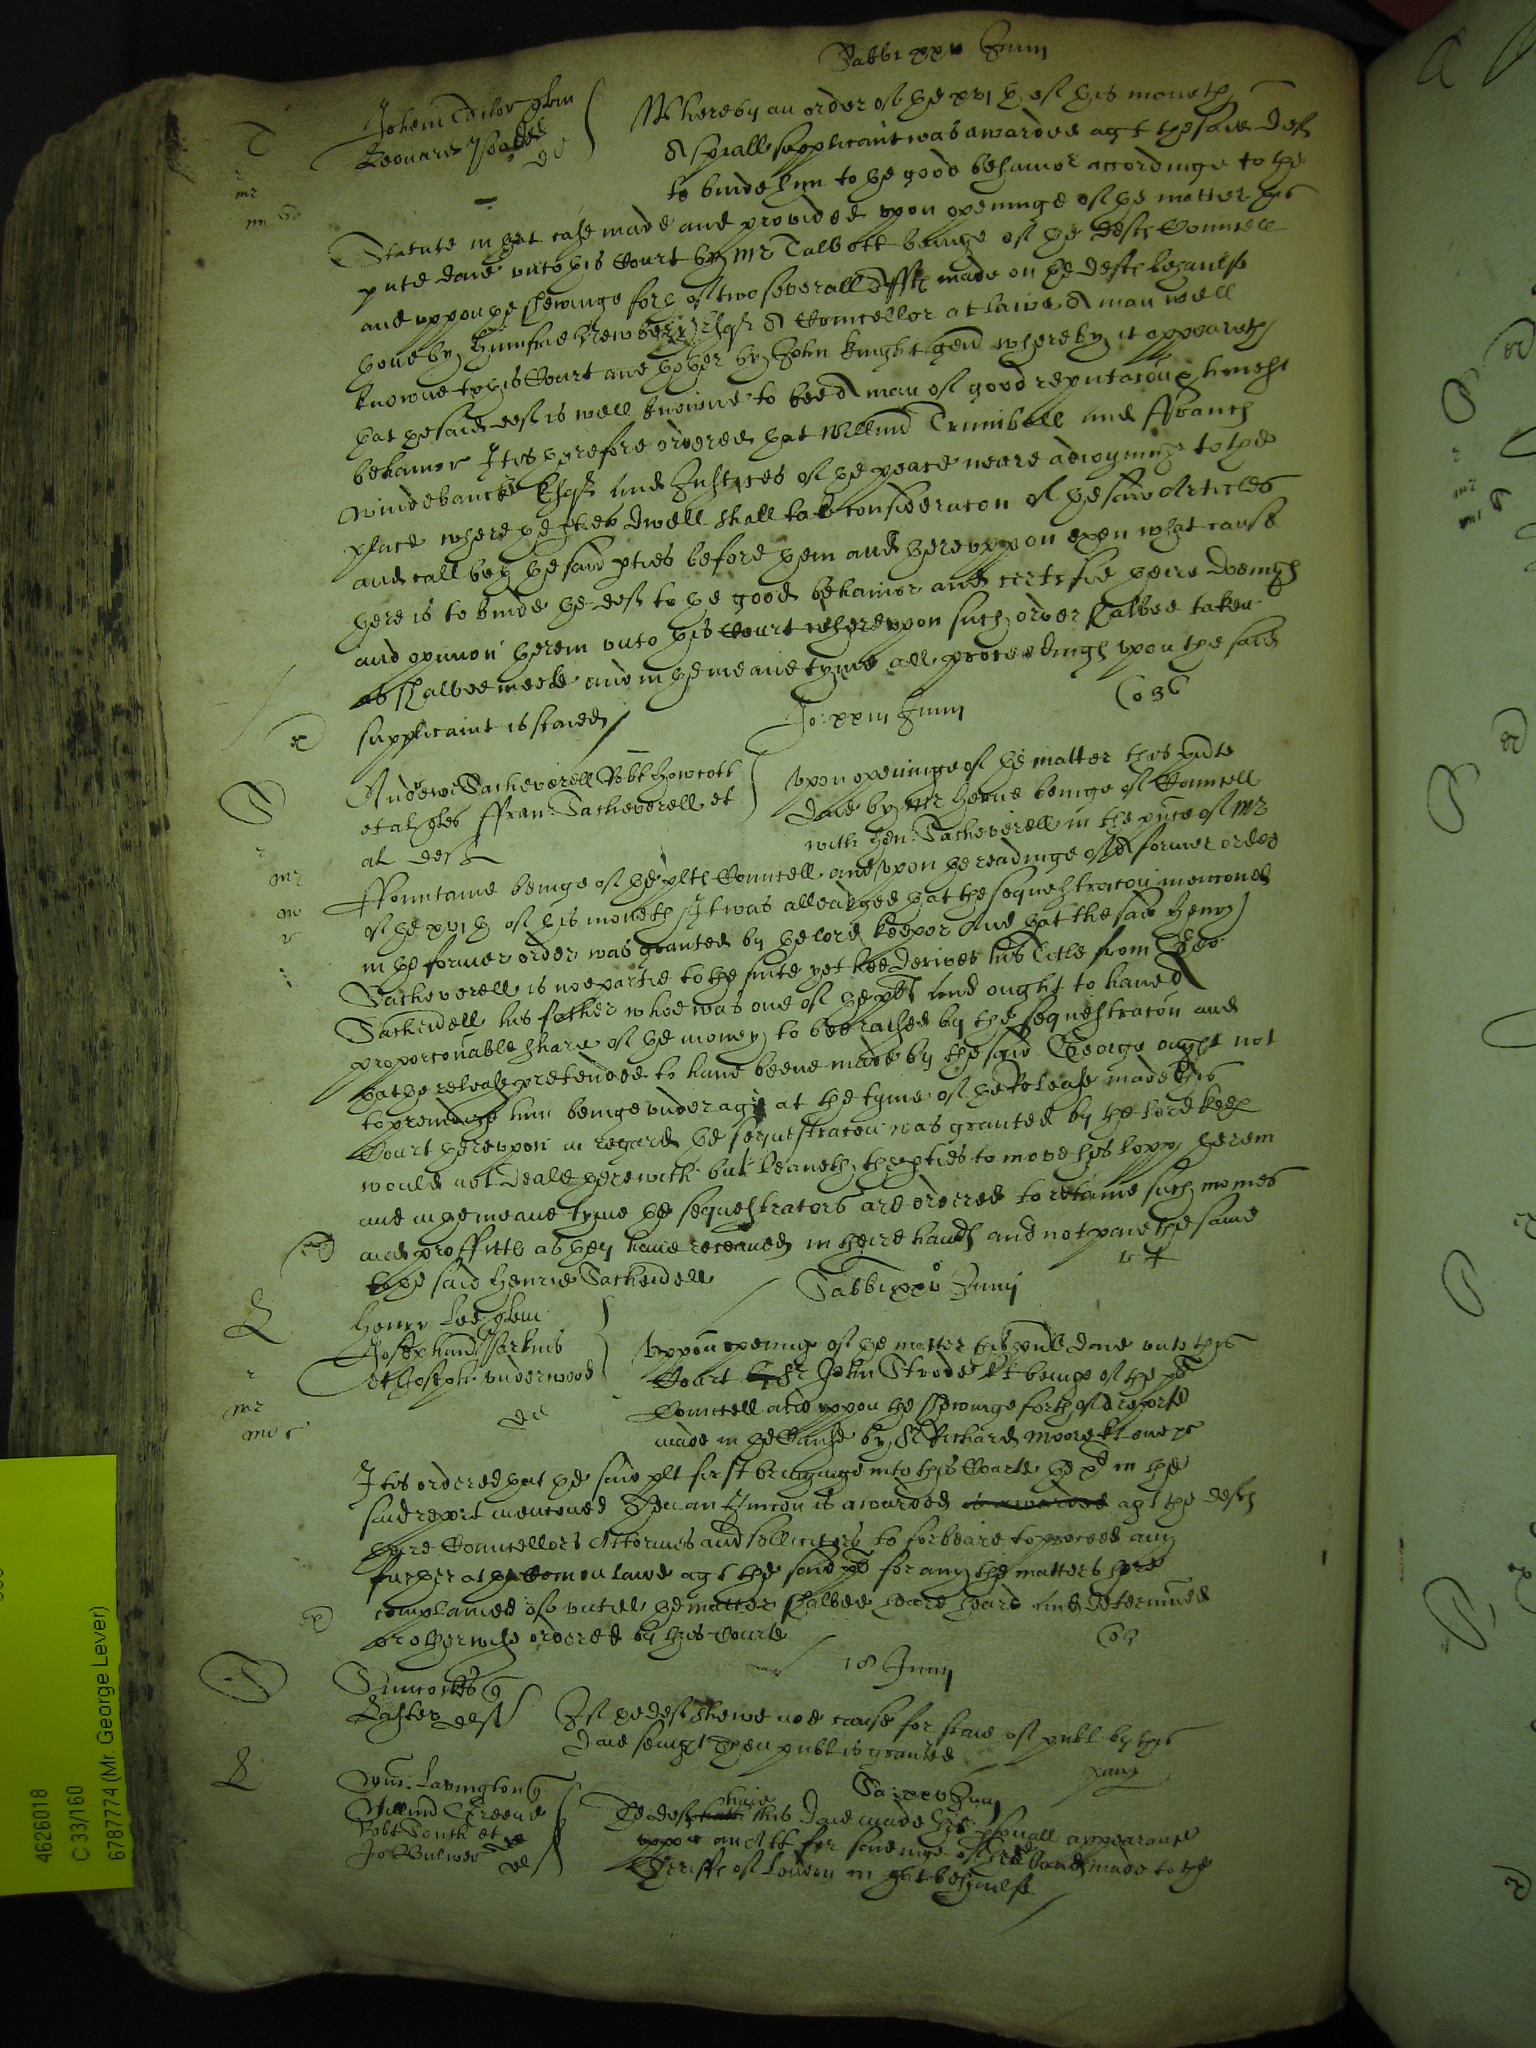 Sabbi xxv Junij
T
Johem Tailor gten
Leonard
Whereby an order of the xvjth of this moneth
A spiall supplicaint was awarded agt the said deft
to binde him to the good behavior accordinge to the
Statute in that case made and provided upon openinge of the matter this
pnte daie unto this Court by Mr Talbott beinge of the defts Councell
and uppon the shewinge forth of two severall Affts made on the defts behaulfe
thone by Humfrie Newbery Esqr A Councellor at lawe A man well
knowne to this Court and thother by John Knight gent whereby it appeareth
that the said deft is well knowne to bee A man of good reputacion & honest
behavior It is therefore ordered that Willm Trumbell and Ffranch
Windebancke Esqr and Justices of the peace neare adioyninge to the
place where the pties dwell shall take consideracon of the said Articles
and call both the said pties before them and thereuppon exen what cause
there is to binde the deft to the good behavior and certefie theire doeings
and opinion therein unto this Court whereuppon such order shalbee taken
as shalbee meete and in the meane tyme all proceedings upon the said
supplicaint is staied
Jo: xxiij Junij
Andrewe Sacheverell Robt Howcott
et al qtes Ffran: Sacheverell et
al deft
Upon openinge of the matter this pnte
daie by Mr Herne beinge of Councell
with Hen: Sacheverell in the pnce of Mr
Ffountaine beinge of the plts Councell and upon the readinge of A former order
of the xvjth of this moneth It was alleadged that the sequestracon mencioned
in the former order was graunted by the lord keeper And that the said Henry
Sacheverell is noe partie to the suite yet hee derives his Title from Geo:
Sachevell his father whoe was one of the plts and ought to have A
proporconable share of the money to bee raised by the sequestracon and
that the release pretended to have beene made by the said George ought not
to preiudice him beinge under age at the tyme of the Release made This
Court thereupon in regard the sequestracon was graunted by the lord keep
would not deale therewith but leaveth the pties to move his lopp therein
and in the meane tyme the sequestrators are ordered to retaine such monies
and proffitts as they have received in theire hands and not paie the same
to the said Henrie Sachevell
Sabbi xxv Junij
L
Henry Lee qten
Josephand Perkins
et Joseph Underwood
Uppon openinge of the matter this pnte daie unto this
Court by Sr John Strode kt beinge of the plts
Councell and uppon the shewinge forth of A reporte
made in the Cause by Sr Richard Moore kt one &c
It is ordered that the said plt first bringinge into this Courte the in the
said report mencioned Then an Iniuncon is awarded is awarded agt the defts
theire Councellors Attornies and sollicitors to forbeare to proceed any
further at the Comon lawe agt the said plt for any the matters here
complained of untill the matter shalbee heare heard and determined
or otherwise ordered by this Courte
18 Junij
Simcockes q
Laster deft
If the deft shewe noe cause for staie of publ by this
daie sevenight then publ is graunted
L
Wm: Lavington q
Willmd Greene
Robt South et
Jo: Bulmer
Sa: xxv Junij
The deft hath haue this daie made his psonall appearance
uppon an Att for savinge of his bond made to the
Sheriffe of London in that behaulfe
4626018
C 33/160
6787774 (Mr. George Lever)